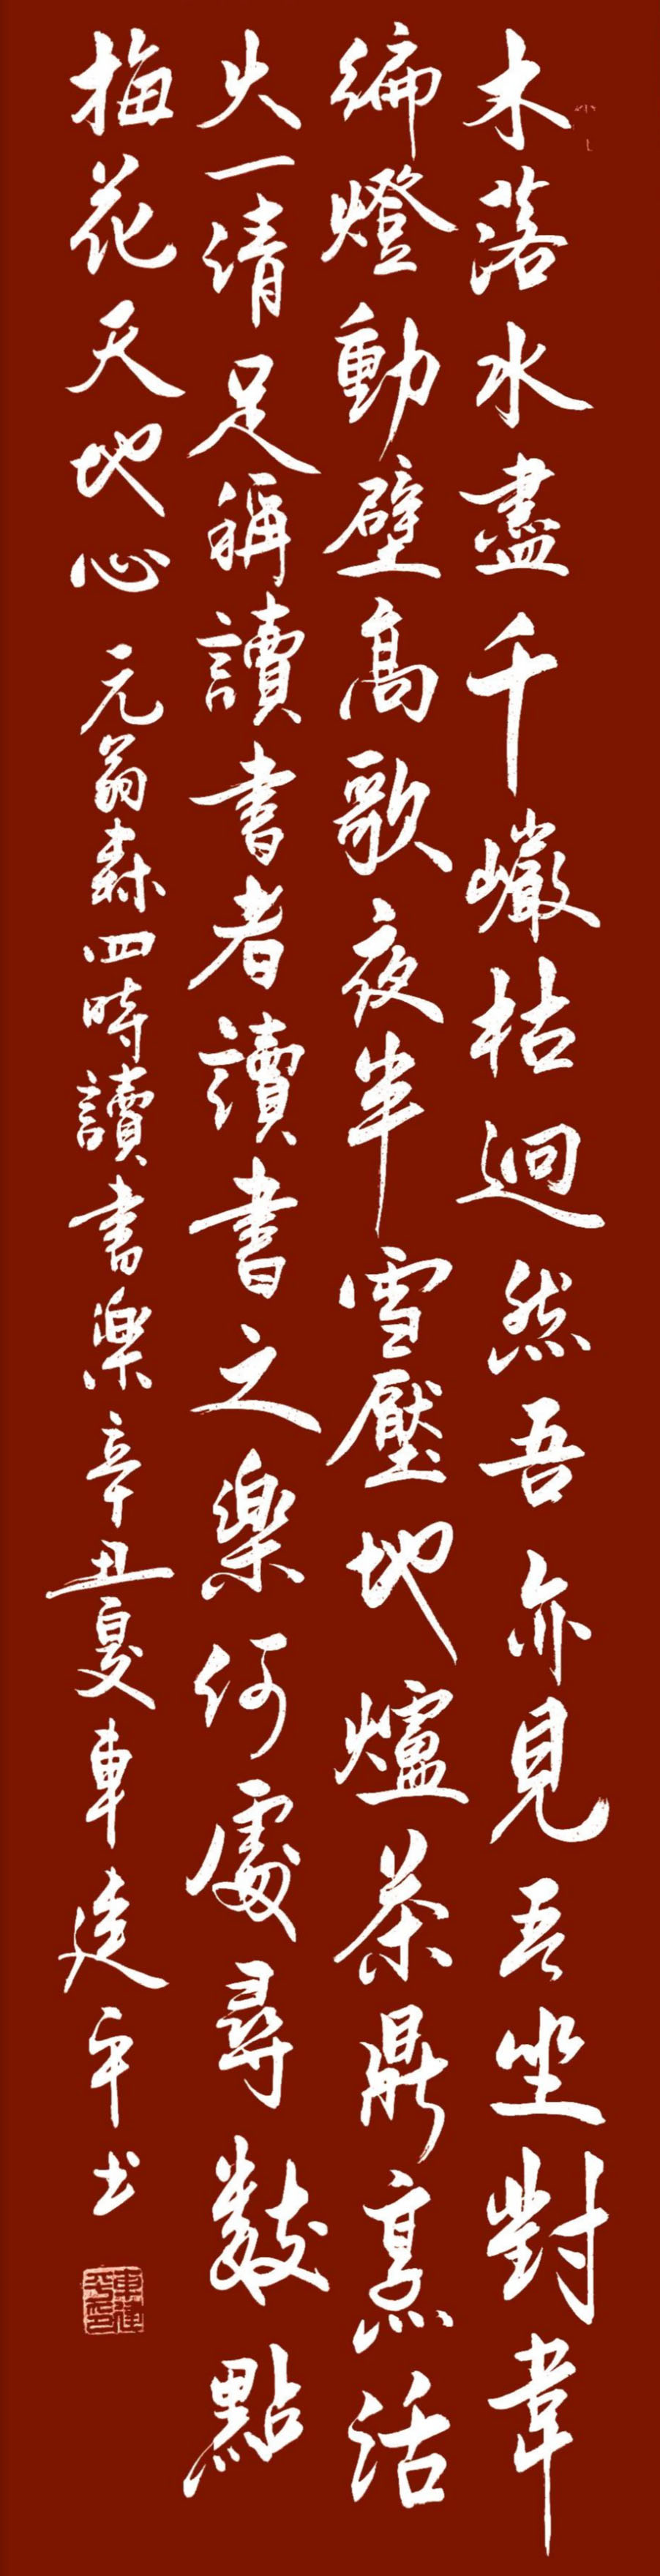 木落水盡千巗枯迥然吾亦見吾坐對韋
編燈動壁高歌夜半雪壓地爐茶鼎烹活
火一清足稱讀書者讀書之樂何處尋數點
梅花天地心 元翁森四時讀書樂辛丑夏車建平书
車建平印